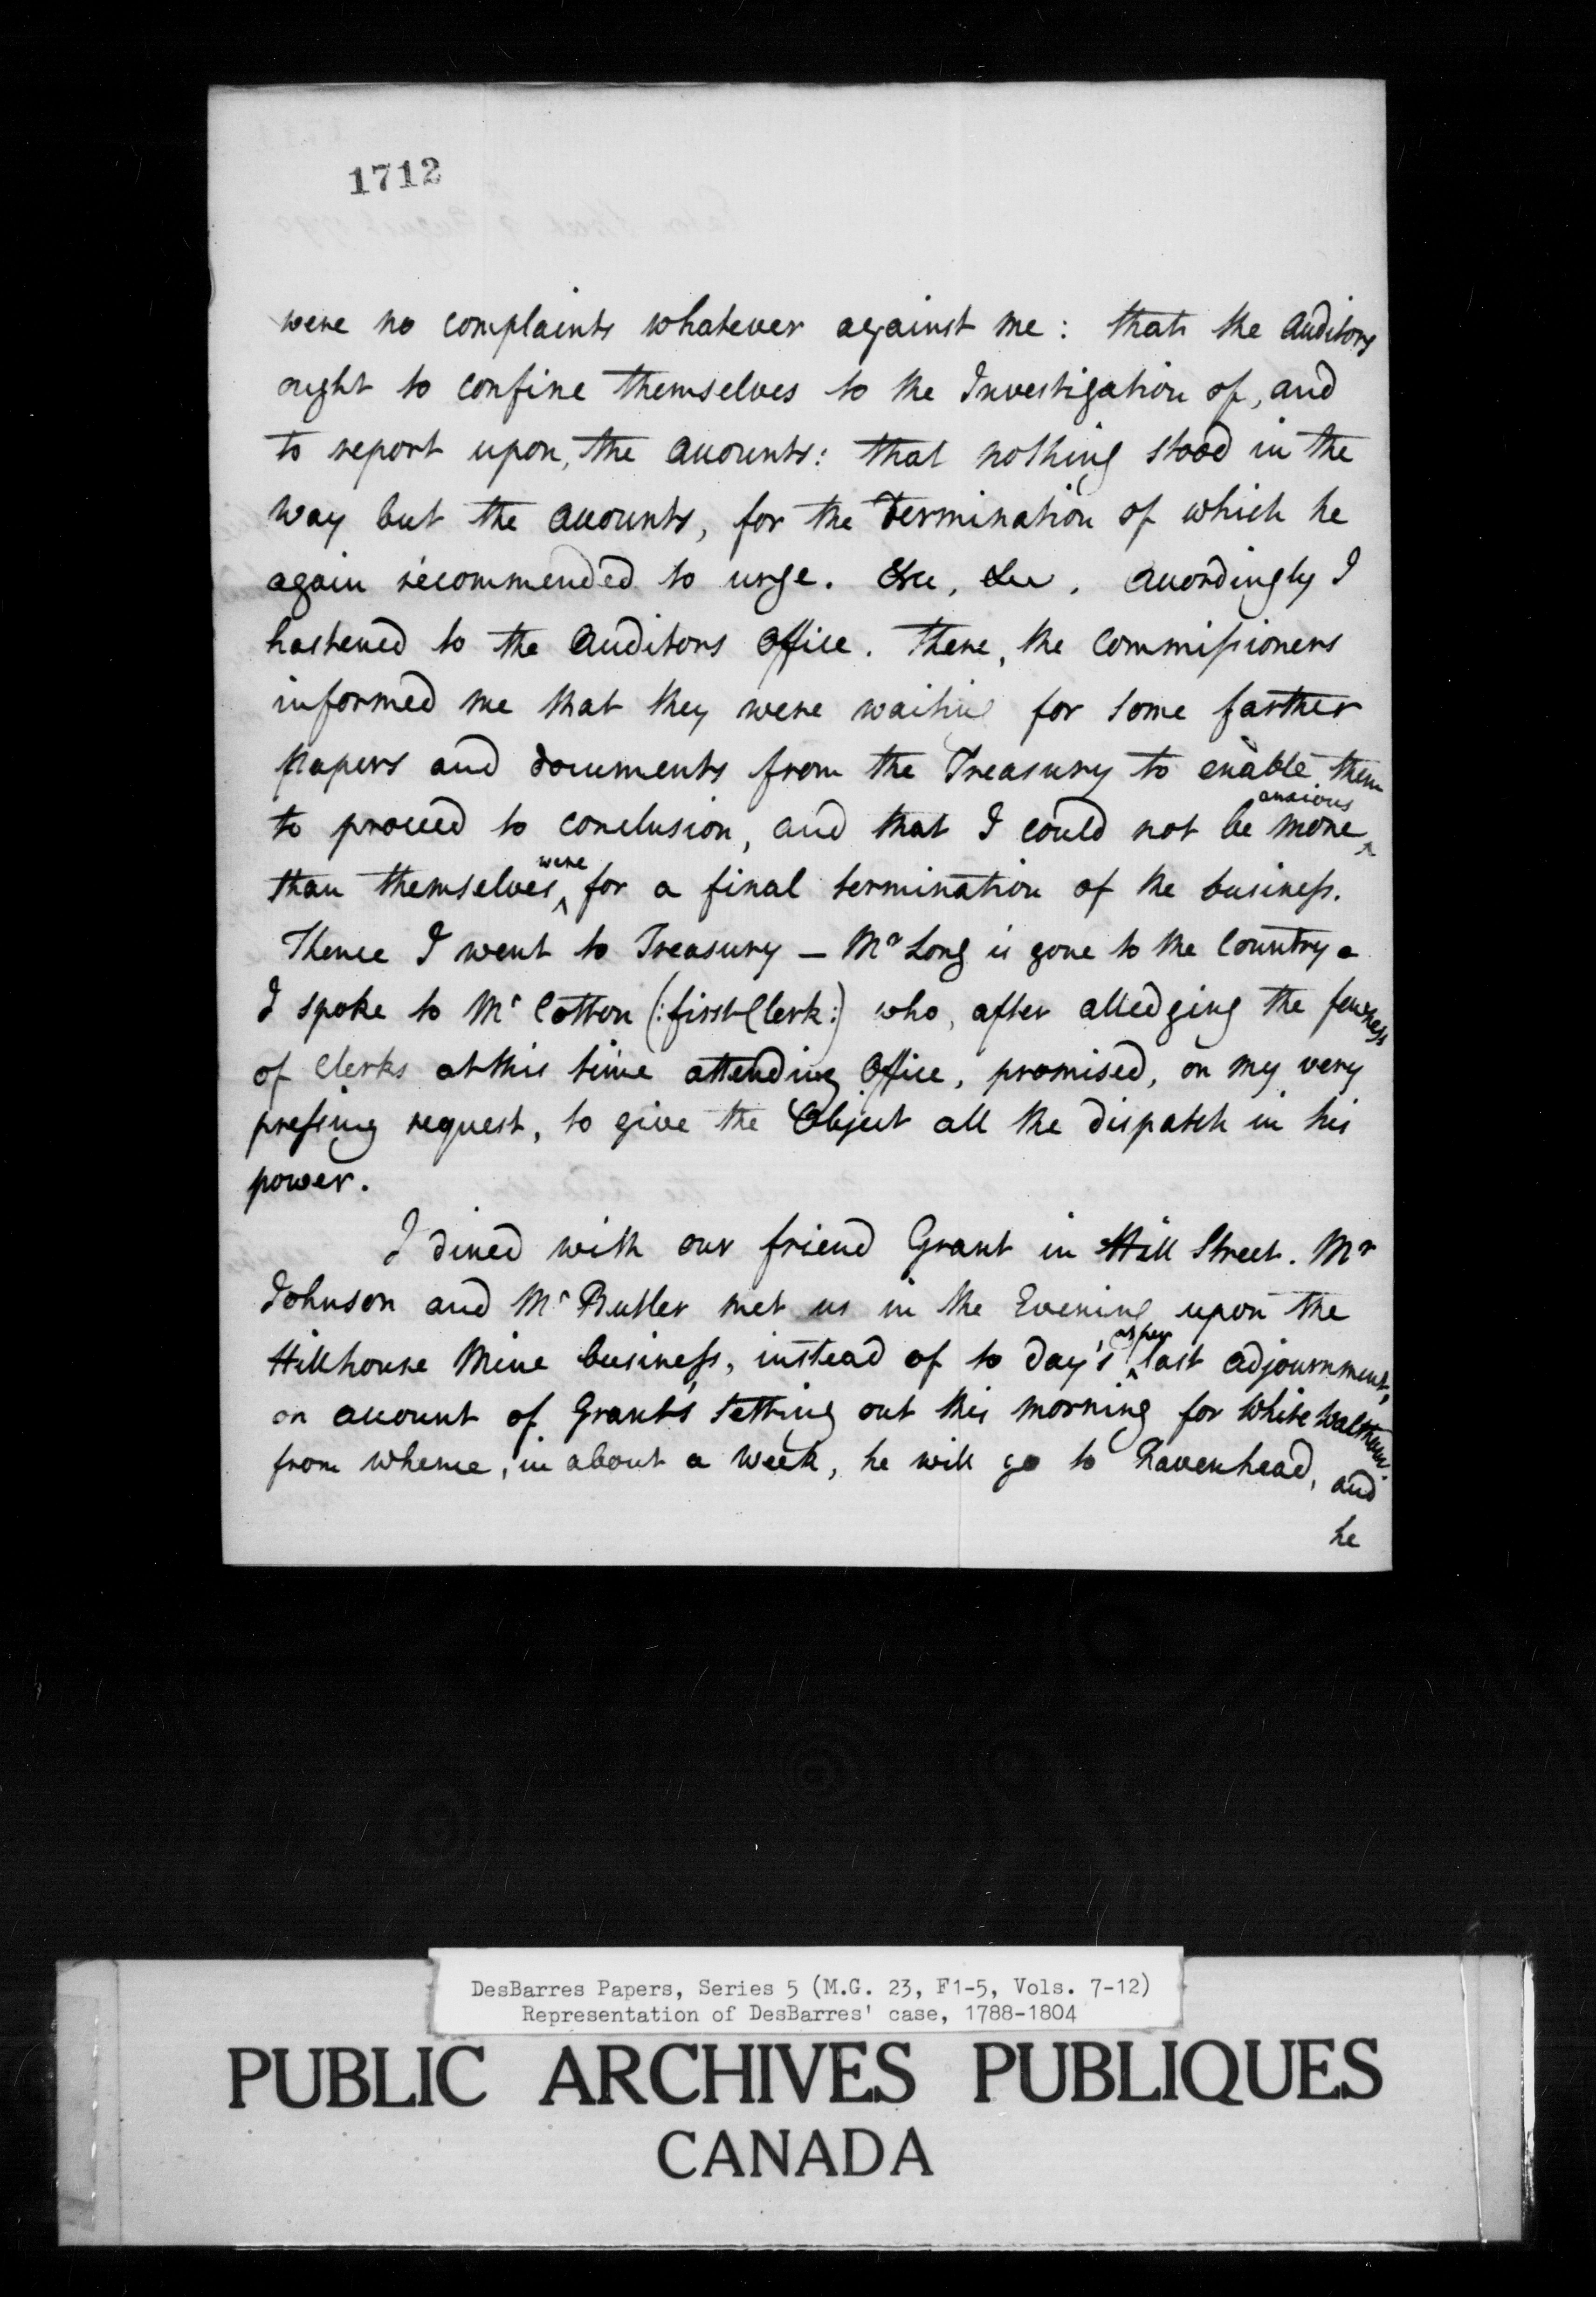 1712
were no complaints whatever against me: that the Auditors
ought to confine themselves to the Investigation of, and
to report upon, the Accounts: that nothing stood in the
way but the Accounts, for the Termination of which he
again recommended to urge. &ca, &ca. Accordingly I
hastened to the Auditors Office. There, the Commissioners
informed me that they were waiting for some farther
papers and documents from the Treasury to enable them
anxious
to proceed to conclusion, and that I could not be more ^
were
than themselves ^ for a final termination of the business.
Thence I went to Treasury — Mr Long is gone to the Country -
I spoke to Mr Cotton (:first Clerk:) who, after alledging the fewness
of Clerks at this time attending Office, promised, on my very
pressing request, to give the Object all the dispatch in his
power.
I dined with our friend Grant in Hill Street. Mr
Johnson and Mr Butler met us in the Evening upon the
as per
Hillhouse Mine business, instead of to day's ^ last adjournment,
on account of Grant's setting out this morning for White Waltham.
from whence, in about a week, he will go to Ravenhead, and
he
DesBarres Papers, Series 5 (M.G. 23, F1-5, Vols. 7-12)
Representation of DesBarres' case, 1788-1804
PUBLIC ARCHIVES PUBLIQUES
CANADA